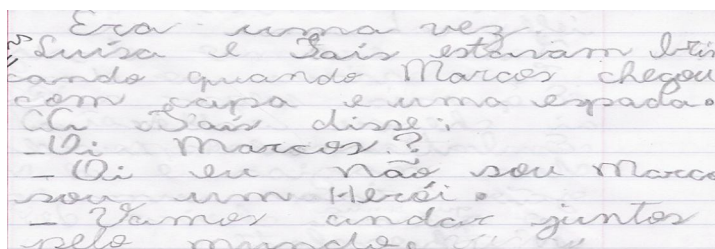 Era uma vez
Luísa e Laís estavam brin
cando quando Marcos chegou
com capa e uma espada.
A Laís disse:
-Oi Marcos?
- Oi eu não sou Marco
sou um Herói.
- Vamos andar juntos
pelo mundo.